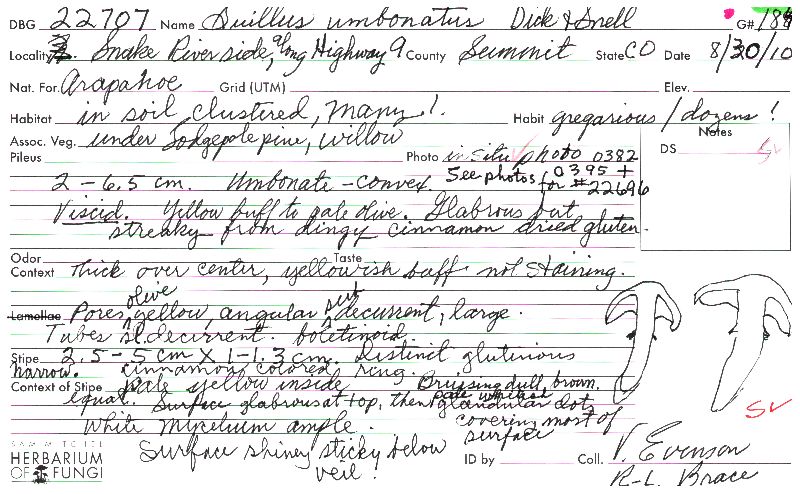 DBG 22707 Name Suillus umbonatus Dick & Snell G# 188
Locality Snake River side, along Highway 9 County Summit State CO Date 8/30/10
Nat. For. Arapahoe Grid (UTM) Elev.
Habitat in soil, clustered, many! Habit gregarious / dozens!
Assoc. Veg. under Lodgepole pine, willow Notes
Pileus Photo in situ photo 0382 DS SV
2 - 6.5 cm. Umbonate - convex. See photos 0395 +
for #22696
Viscid. Yellow buff to pale olive. Glabrous but
streaky from dingy cinnamon dried gluten.
Odor Taste
Context Thick over center, yellowish buff not staining.
olive sub
Lamellae Pores yellow, angular decurrent, large.
Tubes sl. decurrent. boletinoid
Stipe 2.5 - 5 cm X 1 - 1.3 cm. Distinct glutinous
narrow. cinnamon colored ring.
Context of Stipe pale yellow inside Bruising dull, brown.
pale whitish
equal. Surface glabrous at top, then glandular dots
White mycelium ample. covering most of
surface
Surface shiney sticky below
veil.
SV
SAM MITCHEL
HERBARIUM
OF FUNGI
ID by Coll. V. Evenson
R-L. Brace